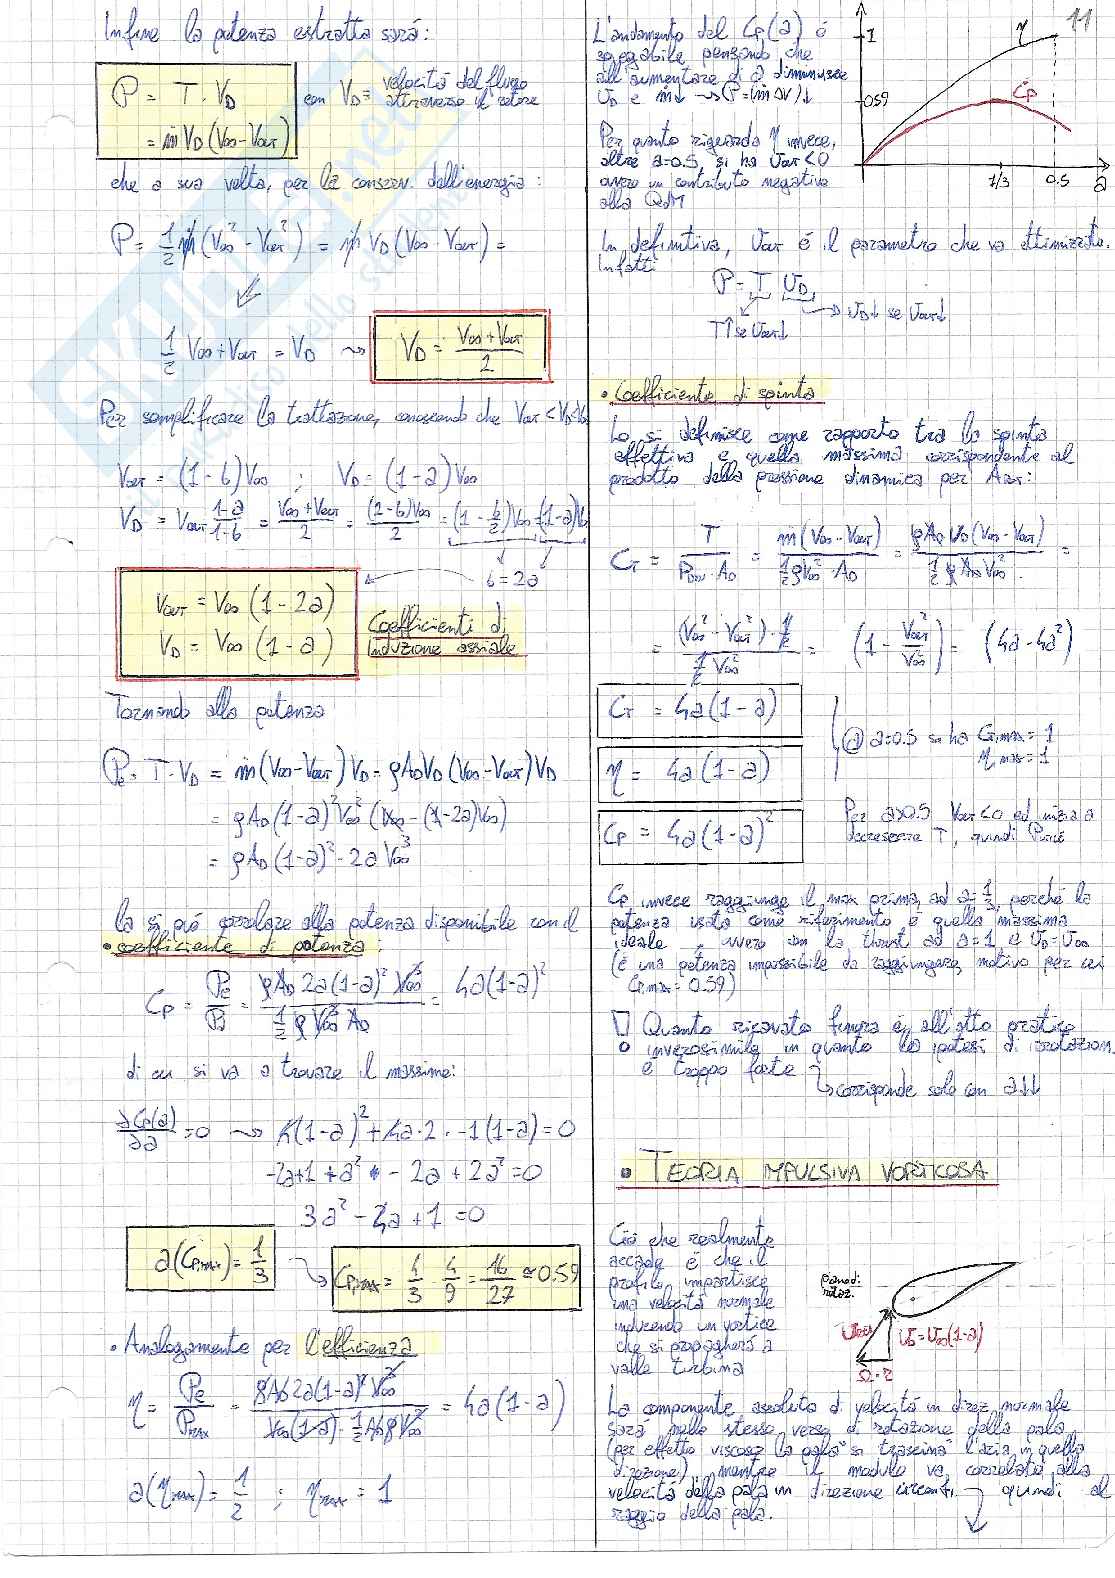 11
Infine la potenza estratta sarà:
P = T · V_D con V_D = velocità del flusso
attraverso il rotore
= ṁ V_D (V∞ - Vout)
che a sua volta, per la conserv. dell'energia:
P = 1/2 ṁ (V∞² - Vout²) = ṁ V_D (V∞ - Vout) =
1/2 V∞ + Vout = V_D ⇝ V_D = (V∞ + Vout)/2
Per semplificare la trattazione, conoscendo che Vout < V_D < V∞
Vout = (1 - b) V∞ ; V_D = (1 - a) V∞
V_D = Vout (1-a)/(1-b) = (V∞ + Vout)/2 = (2-b)V∞/2 = (1 - b/2) V∞ = (1-a) V∞
b = 2a
Vout = V∞ (1 - 2a)
V_D = V∞ (1 - a)
Coefficienti di
induzione assiale
Tornando alla potenza
Pe = T · V_D = ṁ (V∞ - Vout) V_D = ρ A_D V_D (V∞ - Vout) V_D
= ρ A_D (1-a)² V∞² (V∞ - (1-2a) V∞)
= ρ A_D (1-a)² · 2a V∞³
la si può correlare alla potenza disponibile con il
• coefficiente di potenza:
Cp = Pe/P = ρ A_D 2a (1-a)² V∞³ / (1/2 ρ V∞³ A_D) = 4a(1-a)²
di cui si va a trovare il massimo:
∂Cp(a)/∂a = 0 ⇝ 4(1-a)² + 4a·2·-1(1-a) = 0
-2a + 1 + a² - 2a + 2a² = 0
3a² - 4a + 1 = 0
a(Cp,max) = 1/3 → Cp,max = 4/3 · 4/9 = 16/27 ≅ 0.59
• Analogamente per l'efficienza
η = Pe/Pmax = ρ A_D 2a (1-a)² V∞³ / (V∞ (1-a) · 1/2 A_D ρ V∞²) = 4a(1-a)
a(ηmax) = 1/2 ; ηmax = 1
L'andamento del Cp(a) è
spiegabile pensando che
all'aumentare di a diminuisce
U_D e ṁ↓ → (P = (ṁ ΔV)↓
Per quanto riguarda η invece,
oltre a=0.5, si ha Vout < 0
ovvero un contributo negativo
alla QdM
1
0.59
η
Cp
1/3
0.5
a
In definitiva, Vout è il parametro che va ottimizzato.
Infatti
P = T · U_D
U_D↓ se Vout↓
T↑ se Vout↓
• Coefficiente di spinta
Lo si definisce come rapporto tra la spinta
effettiva e quella massima corrispondente al
prodotto della pressione dinamica per Arot:
C_T = T/(Pdin · A_D) = ṁ (V∞ - Vout)/(1/2 ρ V∞² · A_D) = ρ A_D V_D (V∞ - Vout)/(1/2 ρ A_D V∞²) =
= (V∞² - Vout²) · 1/2 / (1/2 V∞²) = (1 - Vout²/V∞²) = (4a - 4a²)
C_T = 4a(1-a)
η = 4a(1-a)
Cp = 4a(1-a)²
@ a=0.5 si ha C_T,max = 1
η,max = 1
Per a>0.5 Vout<0 ed inizia a
decrescere T, quindi P
Cp invece raggiunge il max prima, ad a=1/3, perché la
potenza usata come riferimento è quella massima
ideale, ovvero con la thrust ad a=1 e U_D = U∞
(è una potenza impossibile da raggiungere, motivo per cui
Cp,max = 0.59)
Quanto ricavato finora è, all'atto pratico
inverosimile in quanto la ipotesi di irrotazion.
è troppo forte
↳ corrisponde solo con a↓↓
• TEORIA IMPULSIVA VORTICOSA
Ciò che realmente
accade è che il
profilo impartisce
una velocità normale
inducendo un vortice
che si propagherà a
valle turbina
piano di
rotaz.
U_D = U∞(1-a)
Ω · r
La componente assoluta di velocità in direz. normale
sarà nello stesso verso di rotazione della pala
(per effetto viscoso la pala "si trascina" l'aria in quella
direzione), mentre il modulo va correlato alla
velocità della pala in direzione circonf. → quindi al
raggio della pala.